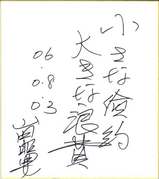 小さな倹約
大きな浪費
06.08.03